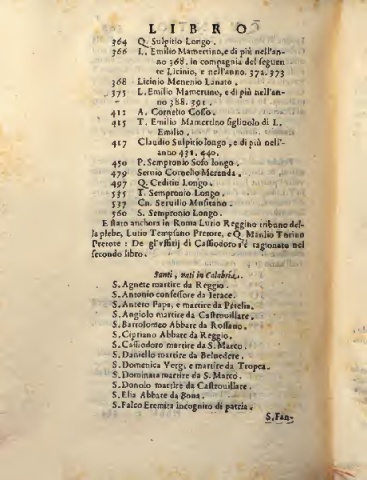 LIBRO
364 Q. Sulpitio Longo.
366 L. Emilio Mamertino, e di più nell'an-
no 368. in compagnia del seguen
te Licinio, e nell'anno. 372. 373
368 Licinio Menenio Lanato.
373 L. Emilio Mamertino, e di più nell'an-
no 388. 391.
412 A. Cornelio Cosso.
415 T. Emilio Mamertino figliuolo di L.
Emilio.
417 Claudio Sulpitio longo, e di più nell'-
anno 431. 440.
450 P. Sempronio Sofo longo.
479 Seruio Cornelio Merenda.
497 Q. Ceditio Longo.
535 T. Sempronio Longo.
537 Cn. Seruilio Musitano.
560 S. Sempronio Longo.
E stato anchora in Roma Lutio Reggino tribuno del-
la plebe, Lutio Tempsano Pretore, e Q. Manlio Turino
Pretore: De gl'vffitij di Cassiodoro s'è ragionato nel
secondo libro.
Santi, nati in Calabria.
S. Agnete martire da Reggio.
S. Antonio confessore da Ierace.
S. Antero Papa, e martire da Petelia.
S. Angiolo martire da Castrouillare.
S. Bartolomeo Abbate da Rossano.
S. Cipriano Abbate da Reggio.
S. Cassiodoro martire da S. Marco.
S. Daniello martire da Beluedere.
S. Domenica Verg. e martire da Tropea.
S. Dominata martire da S. Marco.
S. Donolo martire da Castrouillare.
S. Elia Abbate da Bona.
S. Falco Eremita incognito di patria.
S. Fan-